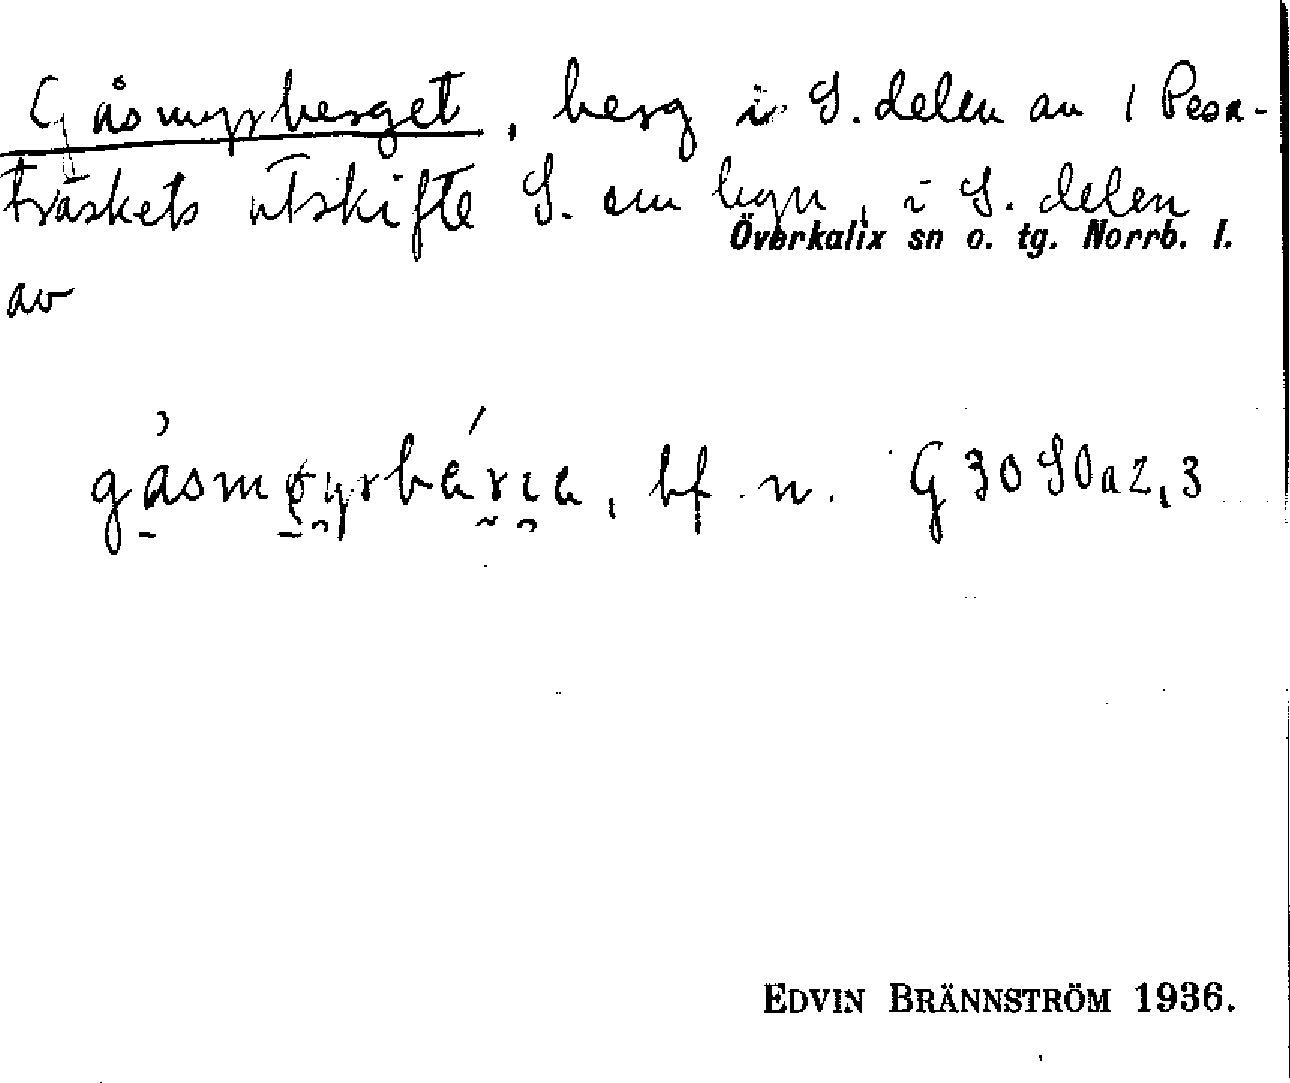 Gåsmyrberget, berg i S. delen av Pesa-
träskets utskifte S. om byn, i S. delen
Överkalix sn o. tg. Norrb. l.
av
bf. n. G 30 S0a2,3
EDVIN BRÄNNSTRÖM 1936.